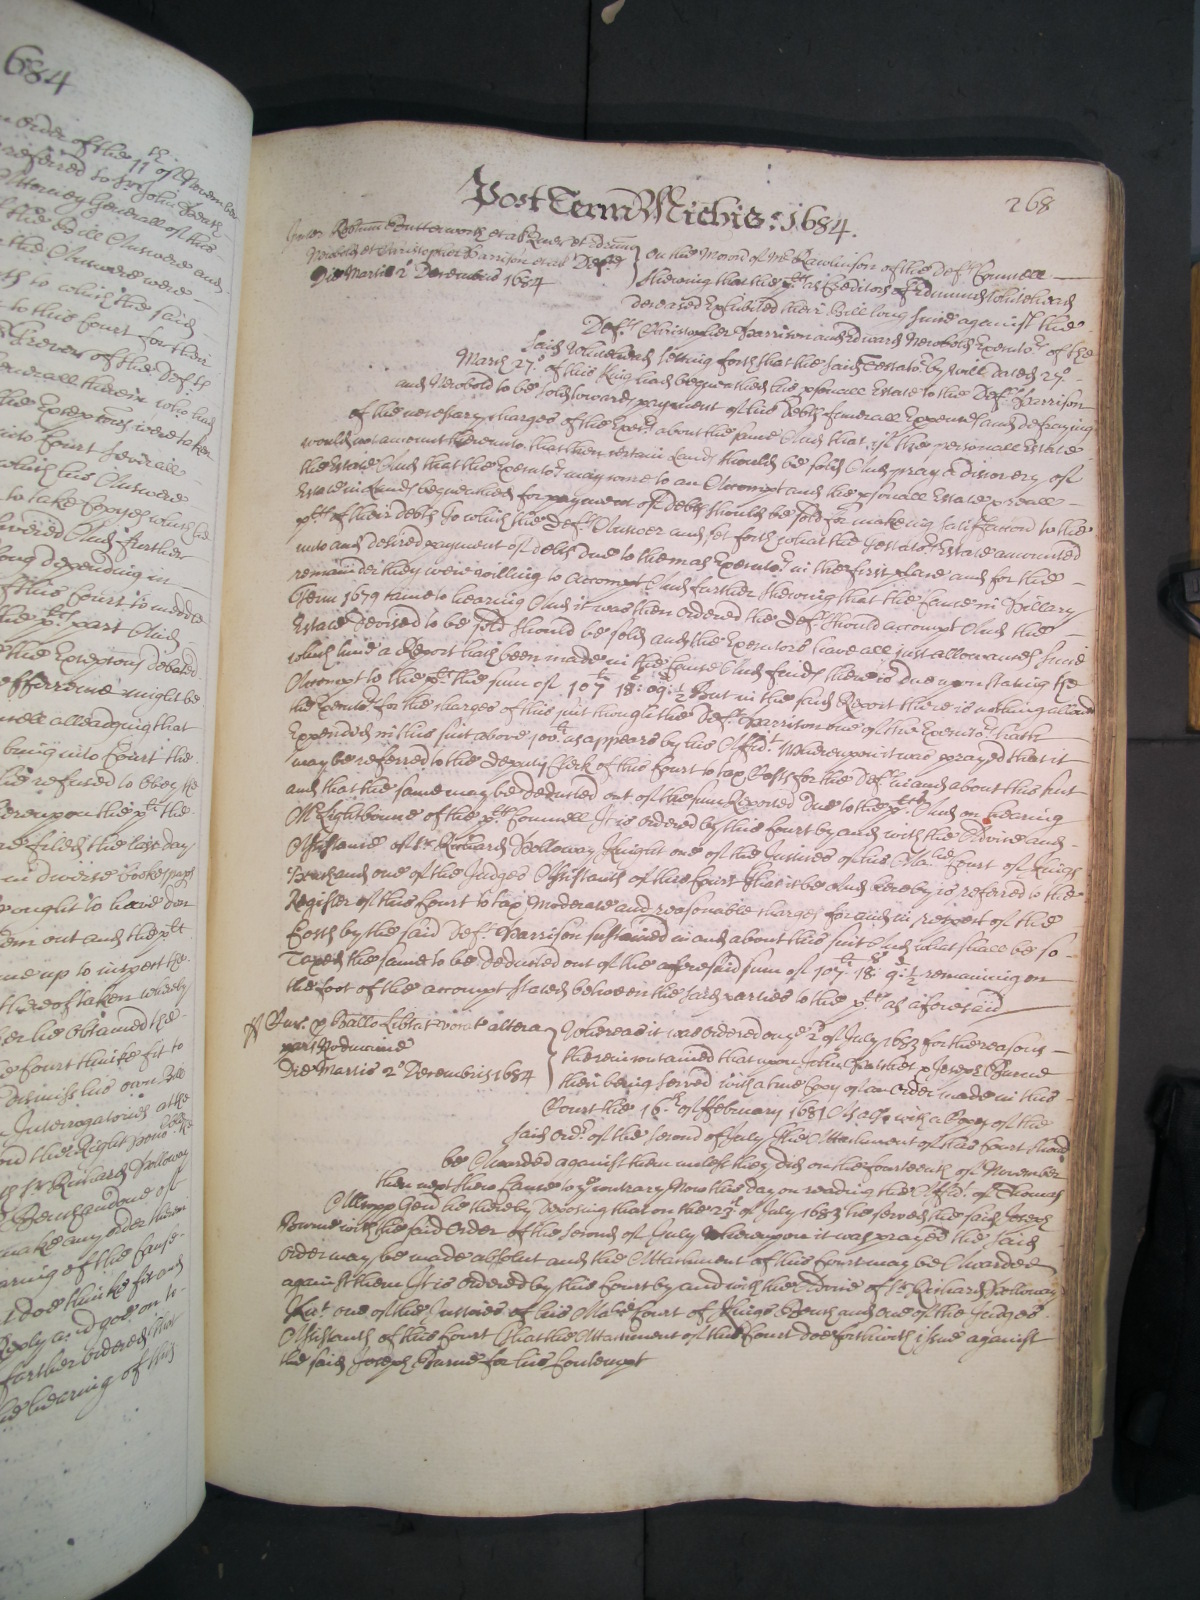 684
Order of the 11th of Novemb
referred to Sr John Heath
Attorney Generall of this
the Bill Answere and
the Answere were
to which the said
to this Court for their
of the Defts
generall therein who had
the Exceptons were taken
into Court severall
which his Answere
to take Copyes which hee
Further
long depending in
of this Court to
the pts part And
the Exceptons Debated
might be
alleadging that
bring into Court the
hee refused to obey the
thereupon the pt the
filed the last day
in diverse
ought to have
out and the plt
up to inspect the
thereof taken whereby
hee obtained the
Court thinke fit to
dismiss his own Bill
Interrogatories
the Right honoble
Sr Richard Holloway
Bench and one of
make any order therein
hearing of the Cause
doe thinke fit and
Reply and goe on to
farther ordered that
hearing of this
Post Term Michis: 1684.
268
Inter Butterworth et al Quer et Edrum
Newbold et Christopher Harrison Defts
Die Martis 2o Decembris 1684
On the Mocon of Mr Rawlinson of the Defts Councell
shewing that the pts as Creditors of Edmund Whitehead
deceased Exhibited their Bill long since against the
Defts Christopher Harrison and Edward Newbold Executors of the
said Whitehead setting forth that the said Testator by Will dated 27o
March 27o of this King had bequeathed his psonall Estate to the Defts Harrison
and Newbold to be sold towards payment of his Debts funerall Expences and defraying
of the necessary charges of the Exers about the same And that if the personall Estate
would not amount thereunto that then certain Lands should be sold And pray a discovery of
the Estate And that the Executors may come to an Accompt and the psonall Estate
Estate in Lands bequeathed for payment of Debts should be sold for making satisfaction to the
pts of their Debts To which the Defts Answer and set forth what the Testators Estate amounted
unto and desired payment of debts due to them as Executors in the first place and for the
remainder they were willing to accompt And further shewing that the Cause in Hillary
Term 1679 came to hearing And it was then ordered the Defts should accompt And the
Estate Devised to be sold should be sold and the Executors have all just allowances since
which time a Report hath been made in the Cause And finds there is due upon stating the
Accompt to the pts the sum of 107li 18s: 09d:½ But in the said Report there is nothing allowed
the Executors for the charges of this suit though the Deft Harrison one of the Executors hath
Expended in this suit above 100li as appears by his Affidt Whereupon it was prayed that it
may be referred to the Deputy Clerk of this Court to tax Costs for the Defts in and about this suit
and that the same may be deducted out of the sum Reported Due to the pts And on hearing
Mr Rightbourne of the pts Councell It is ordered by this Court by and with the Advice and
Assistance of Sr Richard Holloway Knight one of the Justices of his Maties Court of Kings
Bench and one of the Judges Assistants of this Court that it be And hereby is referred to the
Register of this Court to tax Moderate and reasonable charges for and in respect of the
Costs by the said Deft Harrison sustained in and about this suit And what shall be so
Taxed the same to be Deducted out of the aforesaid sum of 107li: 18s: 9d:½ remaining on
the foot of the accompt stated between the said parties to the pts as aforesaid
Duc: & Ballo Libtat
altera
Die Martis 2o Decembris 1684
Whereas it was ordered on ye 2d of July 1683 for the reasons
therein contained that upon John & Joseph Burne
their being served with a true Copy of an Order made in this
Court the 16th of February 1681 As also with a Copy of the
said Ordr of the second of July The Attachment of this Court should
be Awarded against them unless they did on the fourteenth of November
then next shew Cause to ye contrary Now this day on reading the Affidt of Thomas
Allsopp Gen he thereby Deposing that on the 23d of July 1683 he served the said Joseph
Bourne with the said Order of the second of July Whereupon it was prayed the said
order may be made absolut and the Attachment of this Court may be Awarded
against them It is ordered by this Court by and with the Advice of Sr Richard Holloway
Knt one of the Justices of his Maties Court of Kings Bench and one of the Judges
Assistants of this Court That the Attachment of this Court doe forthwith issue against
the said Joseph Burne for his Contempt